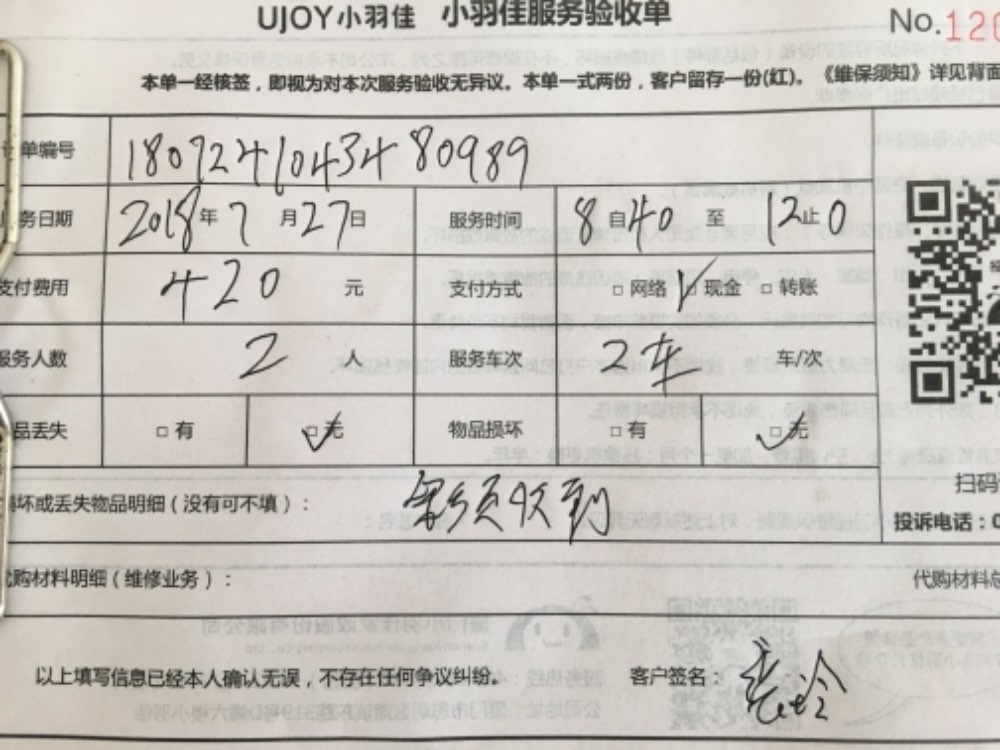 UJOY小羽佳 小羽佳服务验收单 No.126
本单一经核签，即视为对本次服务验收无异议。本单一式两份，客户留存一份(红)。《维保须知》详见背面
单编号 1807241043480989
务日期 2018年7月27日 服务时间 8自40至12止0
支付费用 420元 支付方式 □网络 ☑现金 □转账
服务人数 2人 服务车次 2车 车/次
品丢失 □有 ☑无 物品损坏 □有 ☑无
损坏或丢失物品明细（没有可不填）： 收到
扫码
投诉电话：0
代购材料明细（维修业务）： 代购材料总
以上填写信息已经本人确认无误，不存在任何争议纠纷。 客户签名：